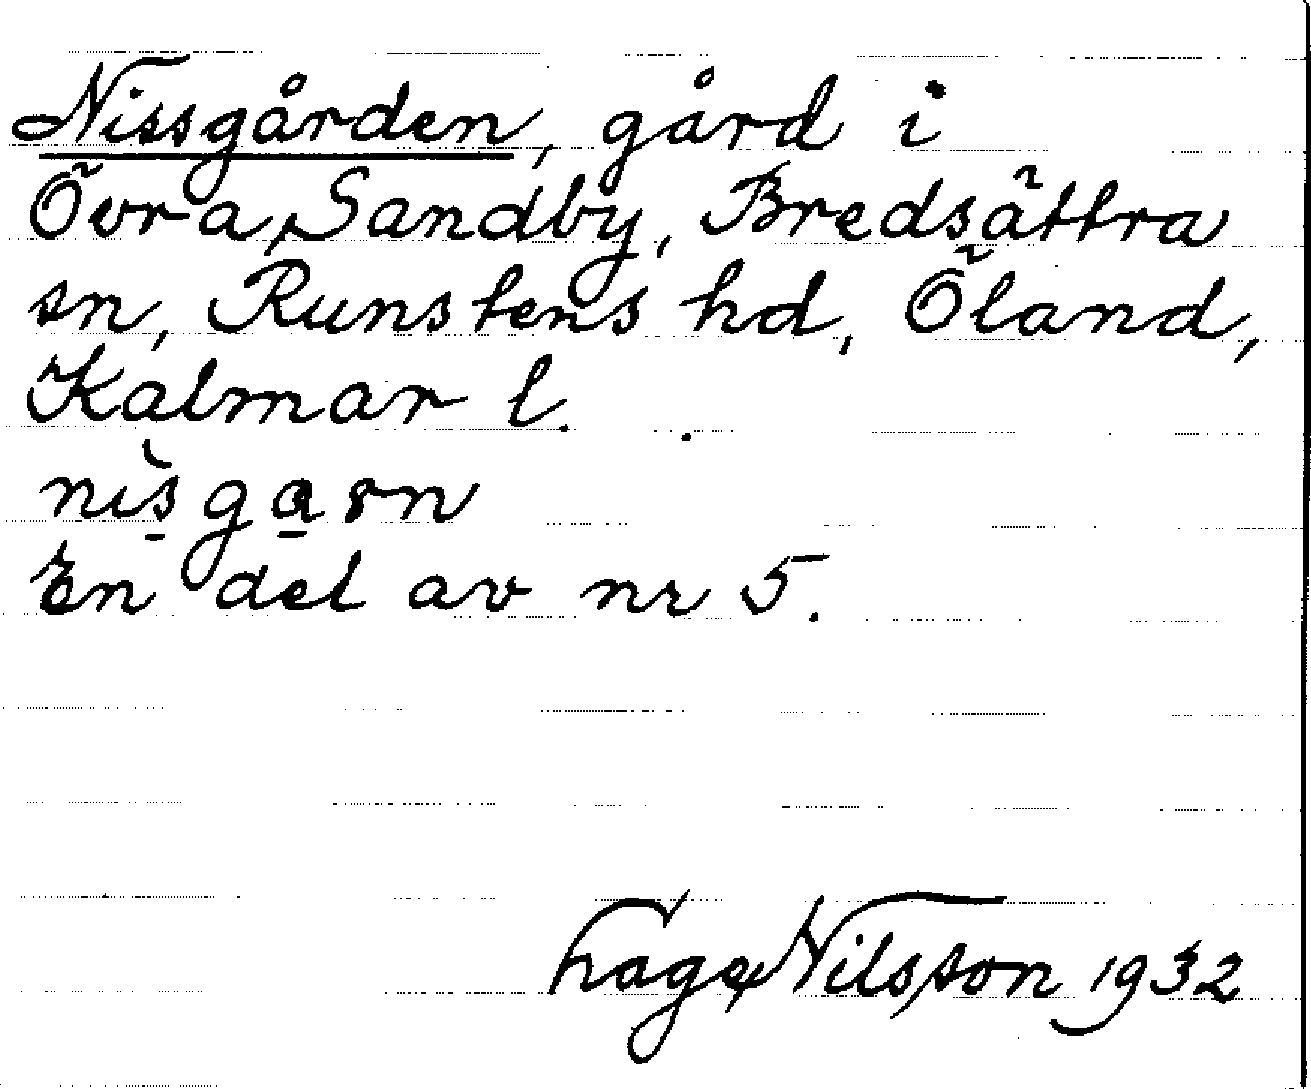 Nissgården, gård i
Övra Sandby, Bredsättra
sn, Runstens hd, Öland,
Kalmar l.
nìs̠ga̠rn
En del av nr 5.
Hage Nilsson 1932